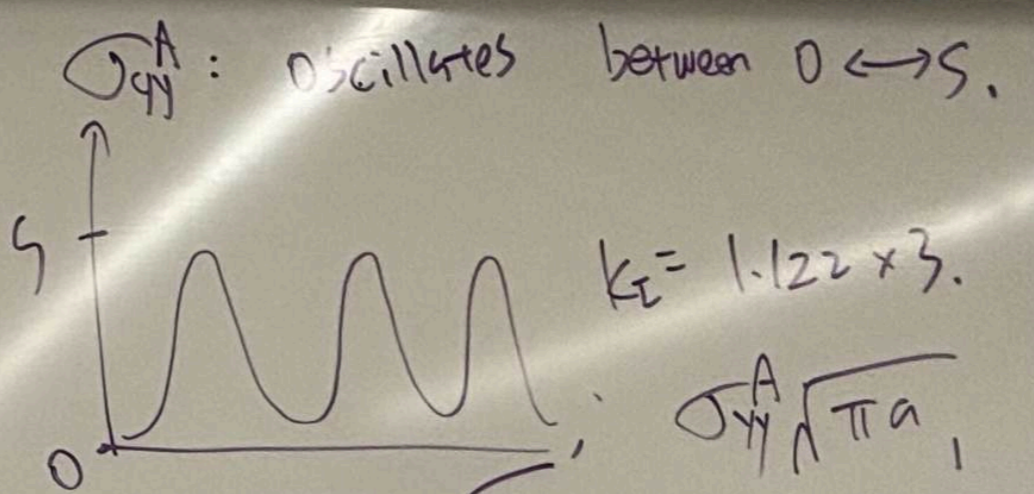 σ_yy^A : Oscillates between 0 ↔ S.
S
K_I = 1.122 × 3.
σ_yy^A √πa ,
0